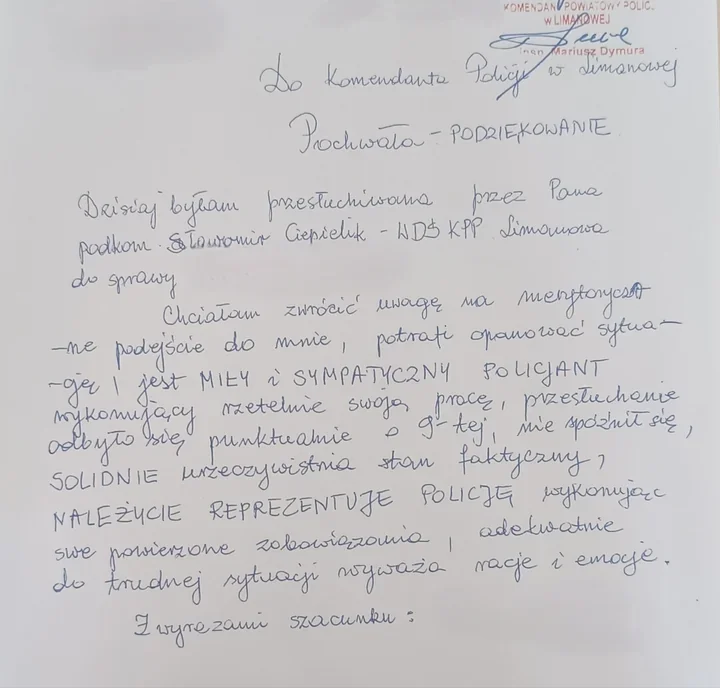 KOMENDANT POWIATOWY POLIC.
W LIMANOWEJ
Mariusz Dymura
Do Komendanta Policji w Limanowej
Pochwała - PODZIĘKOWANIE
Dzisiaj byłam przesłuchiwana przez Pana
podkom. Sławomir Ciepielik - WDŚ KPP Limanowa
do sprawy
Chciałam zwrócić uwagę na merytorycz-
-ne podejście do mnie, potrafi opanować sytua-
-cję, jest MIŁY i SYMPATYCZNY POLICJANT
wykonujący rzetelnie swoją pracę, przesłuchanie
odbyło się punktualnie o 9-tej, nie spóźnił się,
SOLIDNIE urzeczywistnia stan faktyczny,
NALEŻYCIE REPREZENTUJE POLICJĘ wykonując
swe powierzone zobowiązania, adekwatnie
do trudnej sytuacji wyważa racje i emocje.
Z wyrazami szacunku: